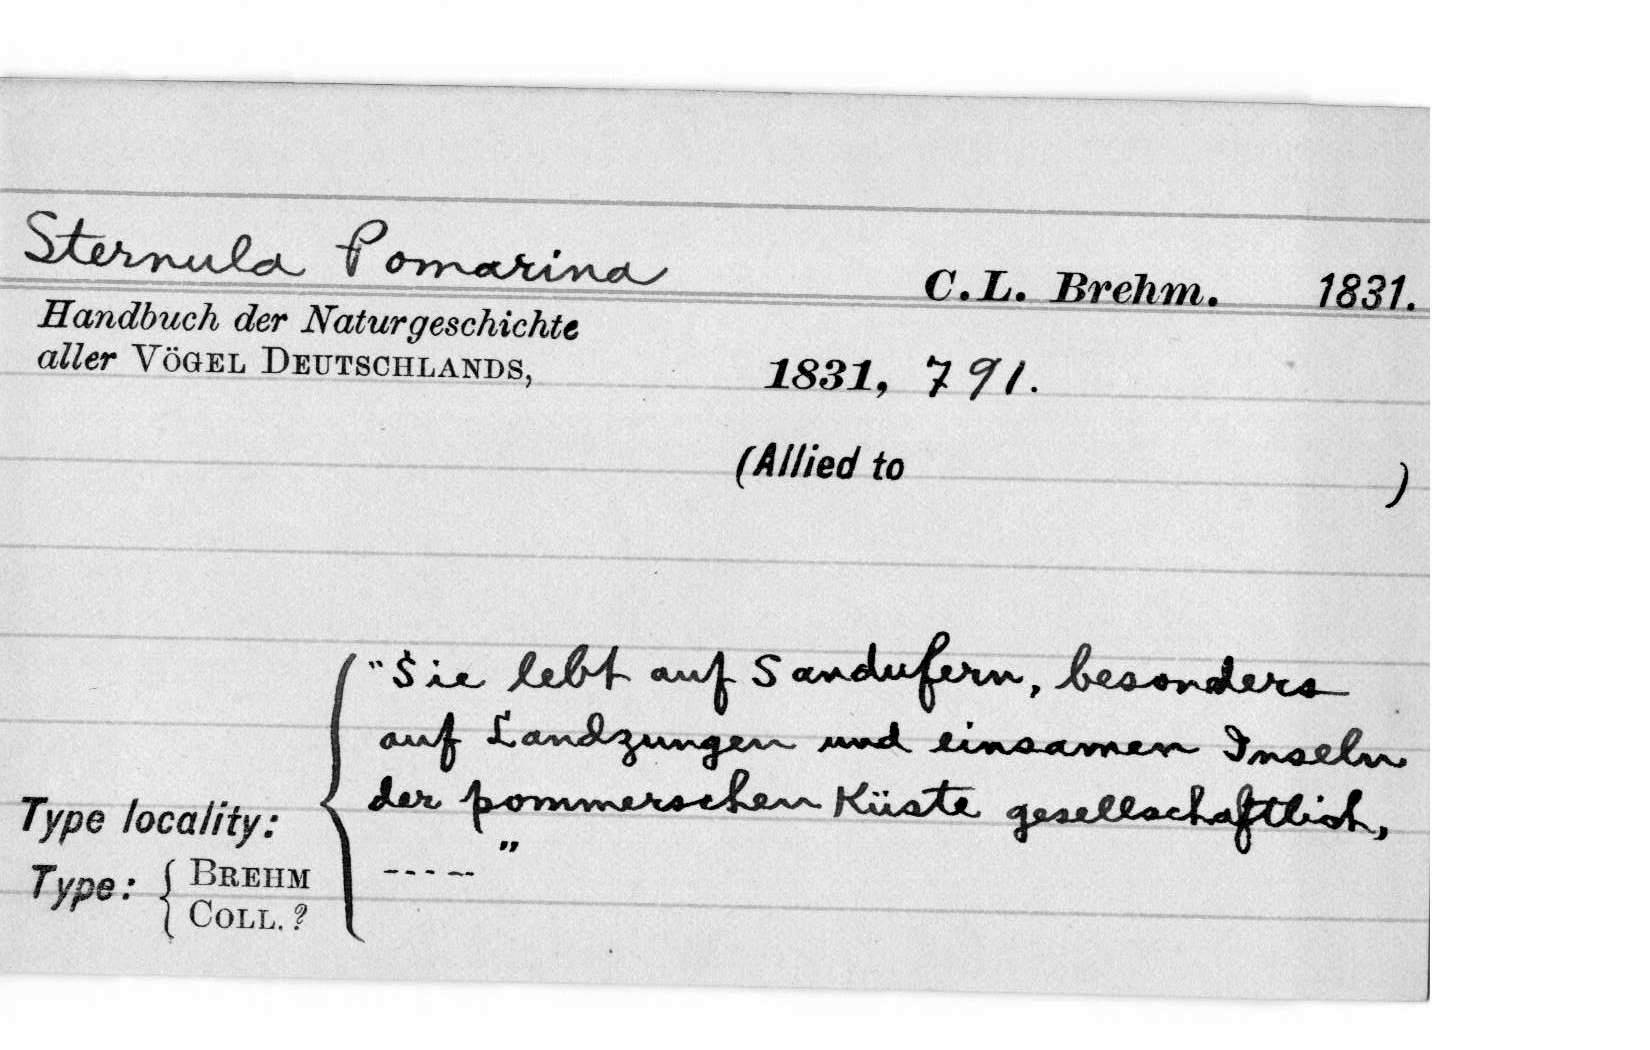 Sternula Pomarina C.L. Brehm. 1831.
Handbuch der Naturgeschichte
aller VÖGEL DEUTSCHLANDS, 1831, 791.
(Allied to )
"Sie lebt auf Sandufern, besonders
auf Landzungen und einsamen Inseln
der pommerschen Küste gesellschaftlich,
-----"
Type locality:
Type: { BREHM
COLL. ?